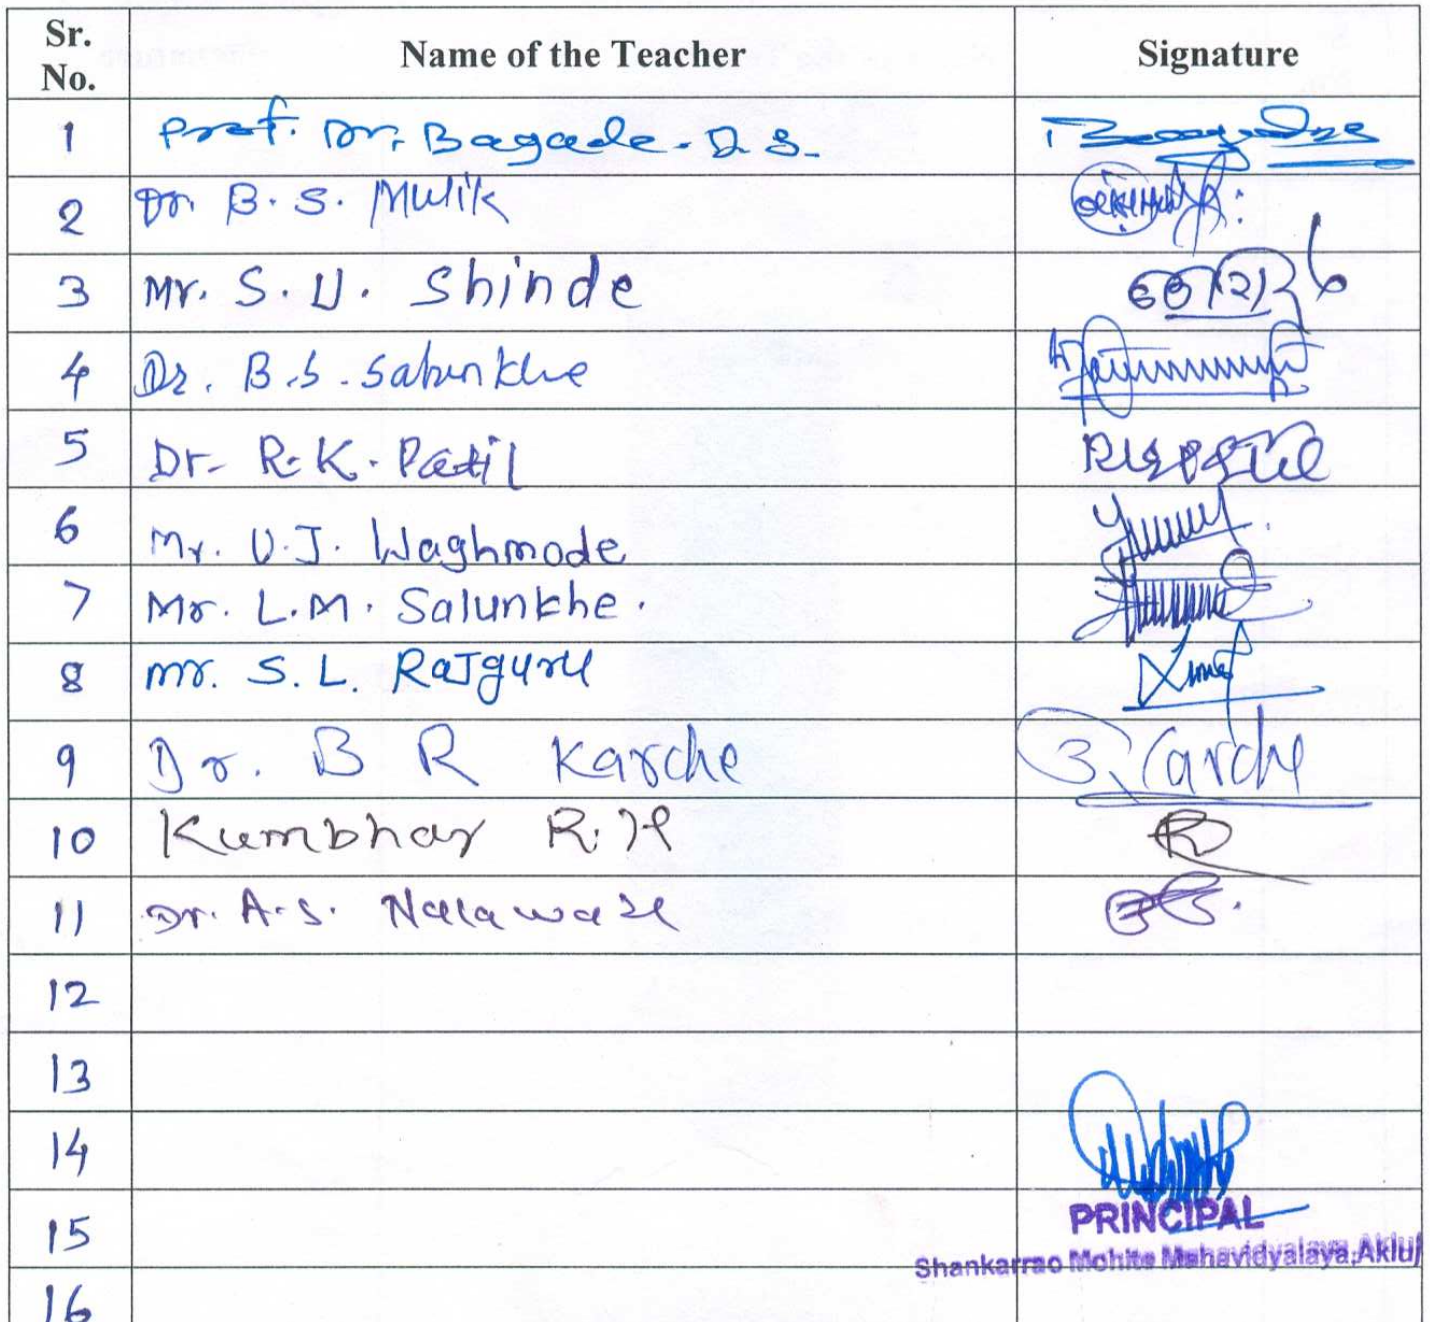 Sr. No. Name of the Teacher Signature
1 Prof. Dr. Bagade. D. S.
2 Dr. B. S. Mulik
3 Mr. S. U. Shinde
4 Dr. B.S. Salunkhe
5 Dr. R.K. Patil
6 Mr. U.J. Waghmode
7 Mr. L.M. Salunkhe.
8 mr. S. L. Rajguru
9 Dr. B R Karche Karche
10 Kumbhar R. H
11 Dr. A.S. Nalawade
12
13
14
PRINCIPAL
15
Shankarrao Mohite Mahavidyalaya, Akluj
16